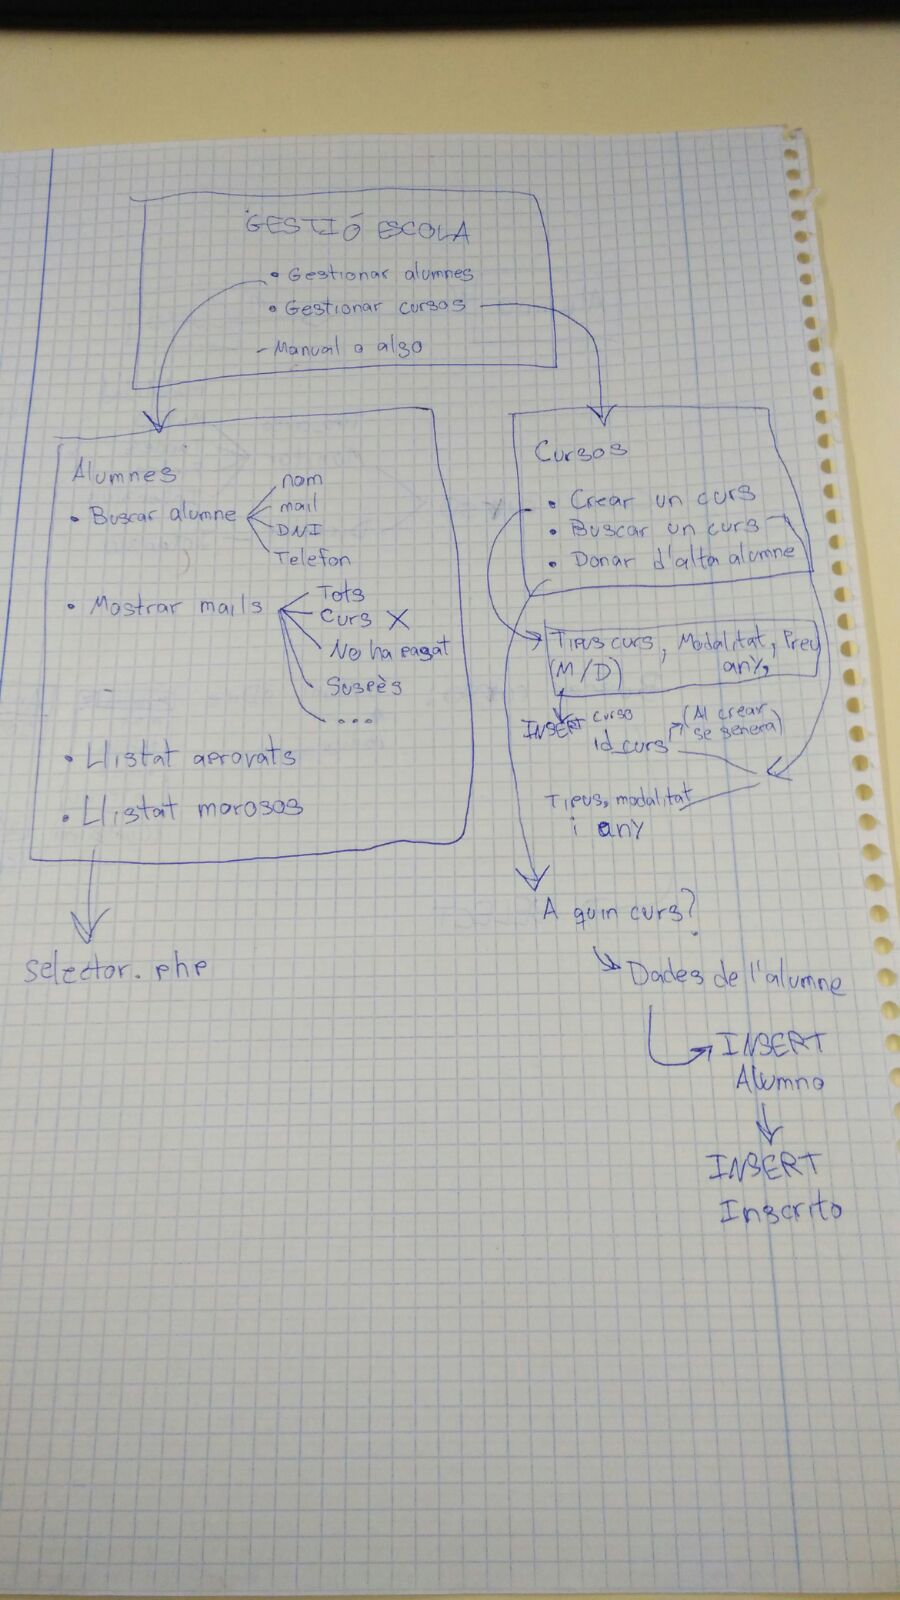 GESTIÓ ESCOLA
• Gestionar alumnes
• Gestionar cursos
- Manual o algo
Alumnes
• Buscar alumne
nom
mail
DNI
Telefon
• Mostrar mails
Tots
Curs X
No ha pagat
Suspès
...
• Llistat aprovats
• Llistat morosos
selector.php
Cursos
• Crear un curs
• Buscar un curs
• Donar d'alta alumne
Tipus curs, Modalitat, Preu
(M/D) any,
INSERT curso
id_curs
(Al crear
se genera)
Tipus, modalitat
i any
A quin curs?
Dades de l'alumne
INSERT
Alumno
INSERT
Inscrito